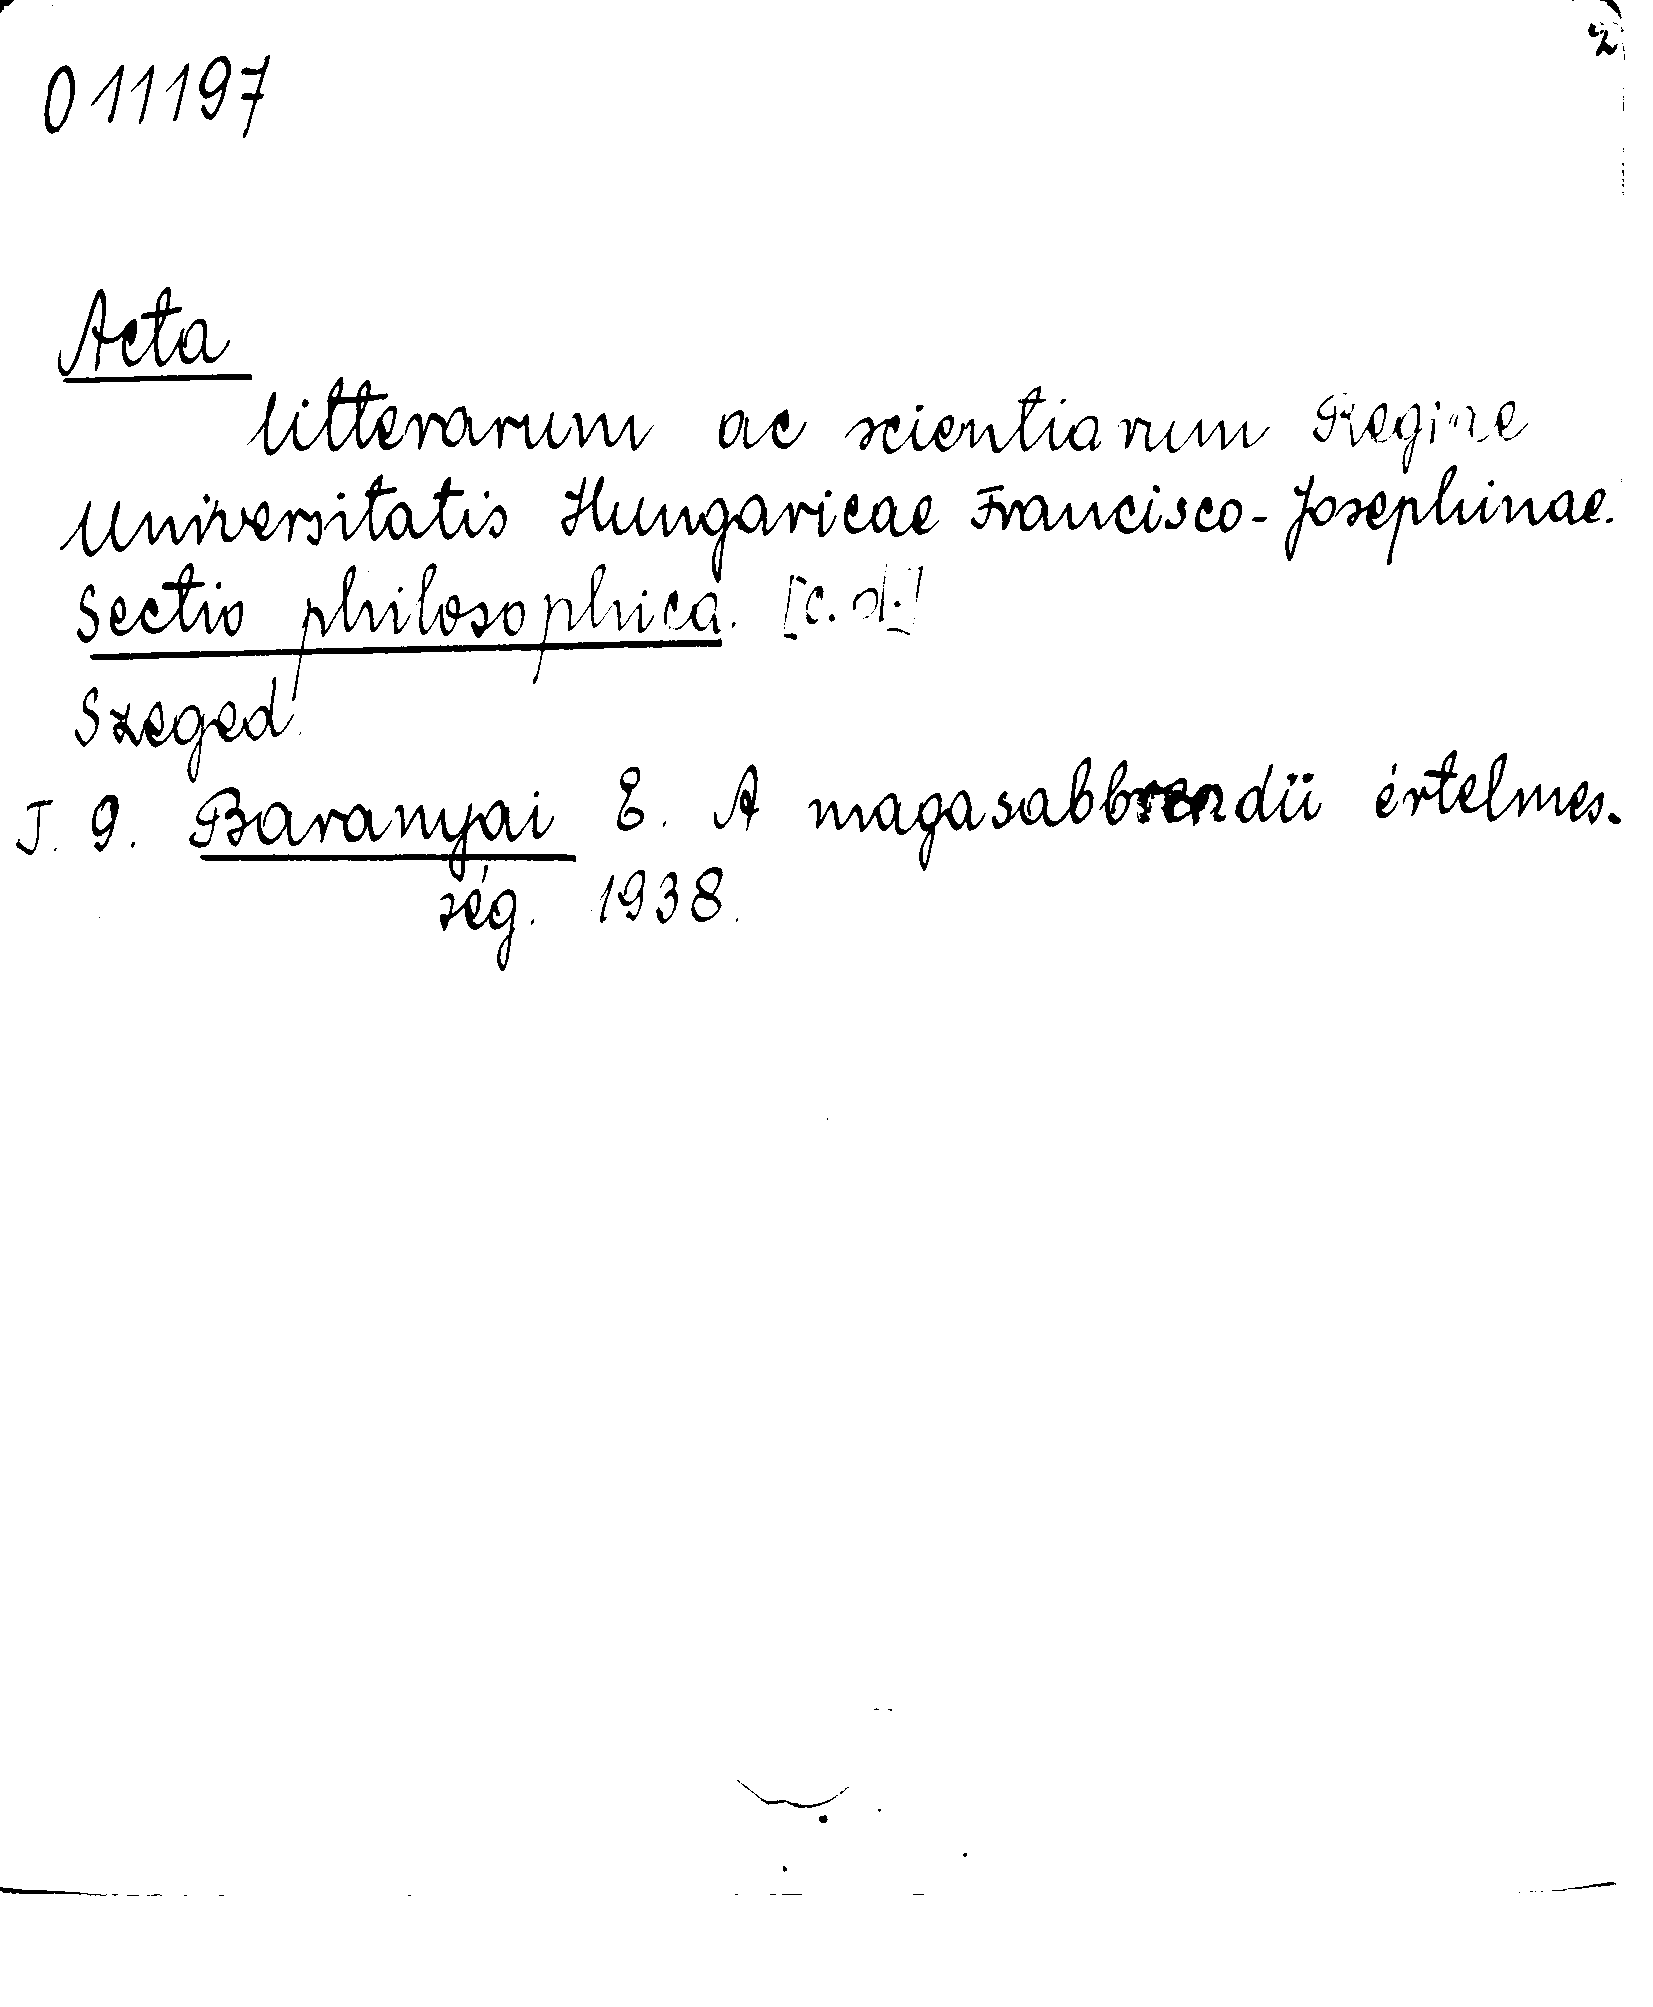 2
011197
Acta
litterarum ac scientiarum Regiae
Universitatis Hungaricae Francisco-Josephinae.
Sectio philosophica. [c.d.]
Szeged.
T. 9. Baranyai E. A magasabbrendü értelmes-
ség. 1938.